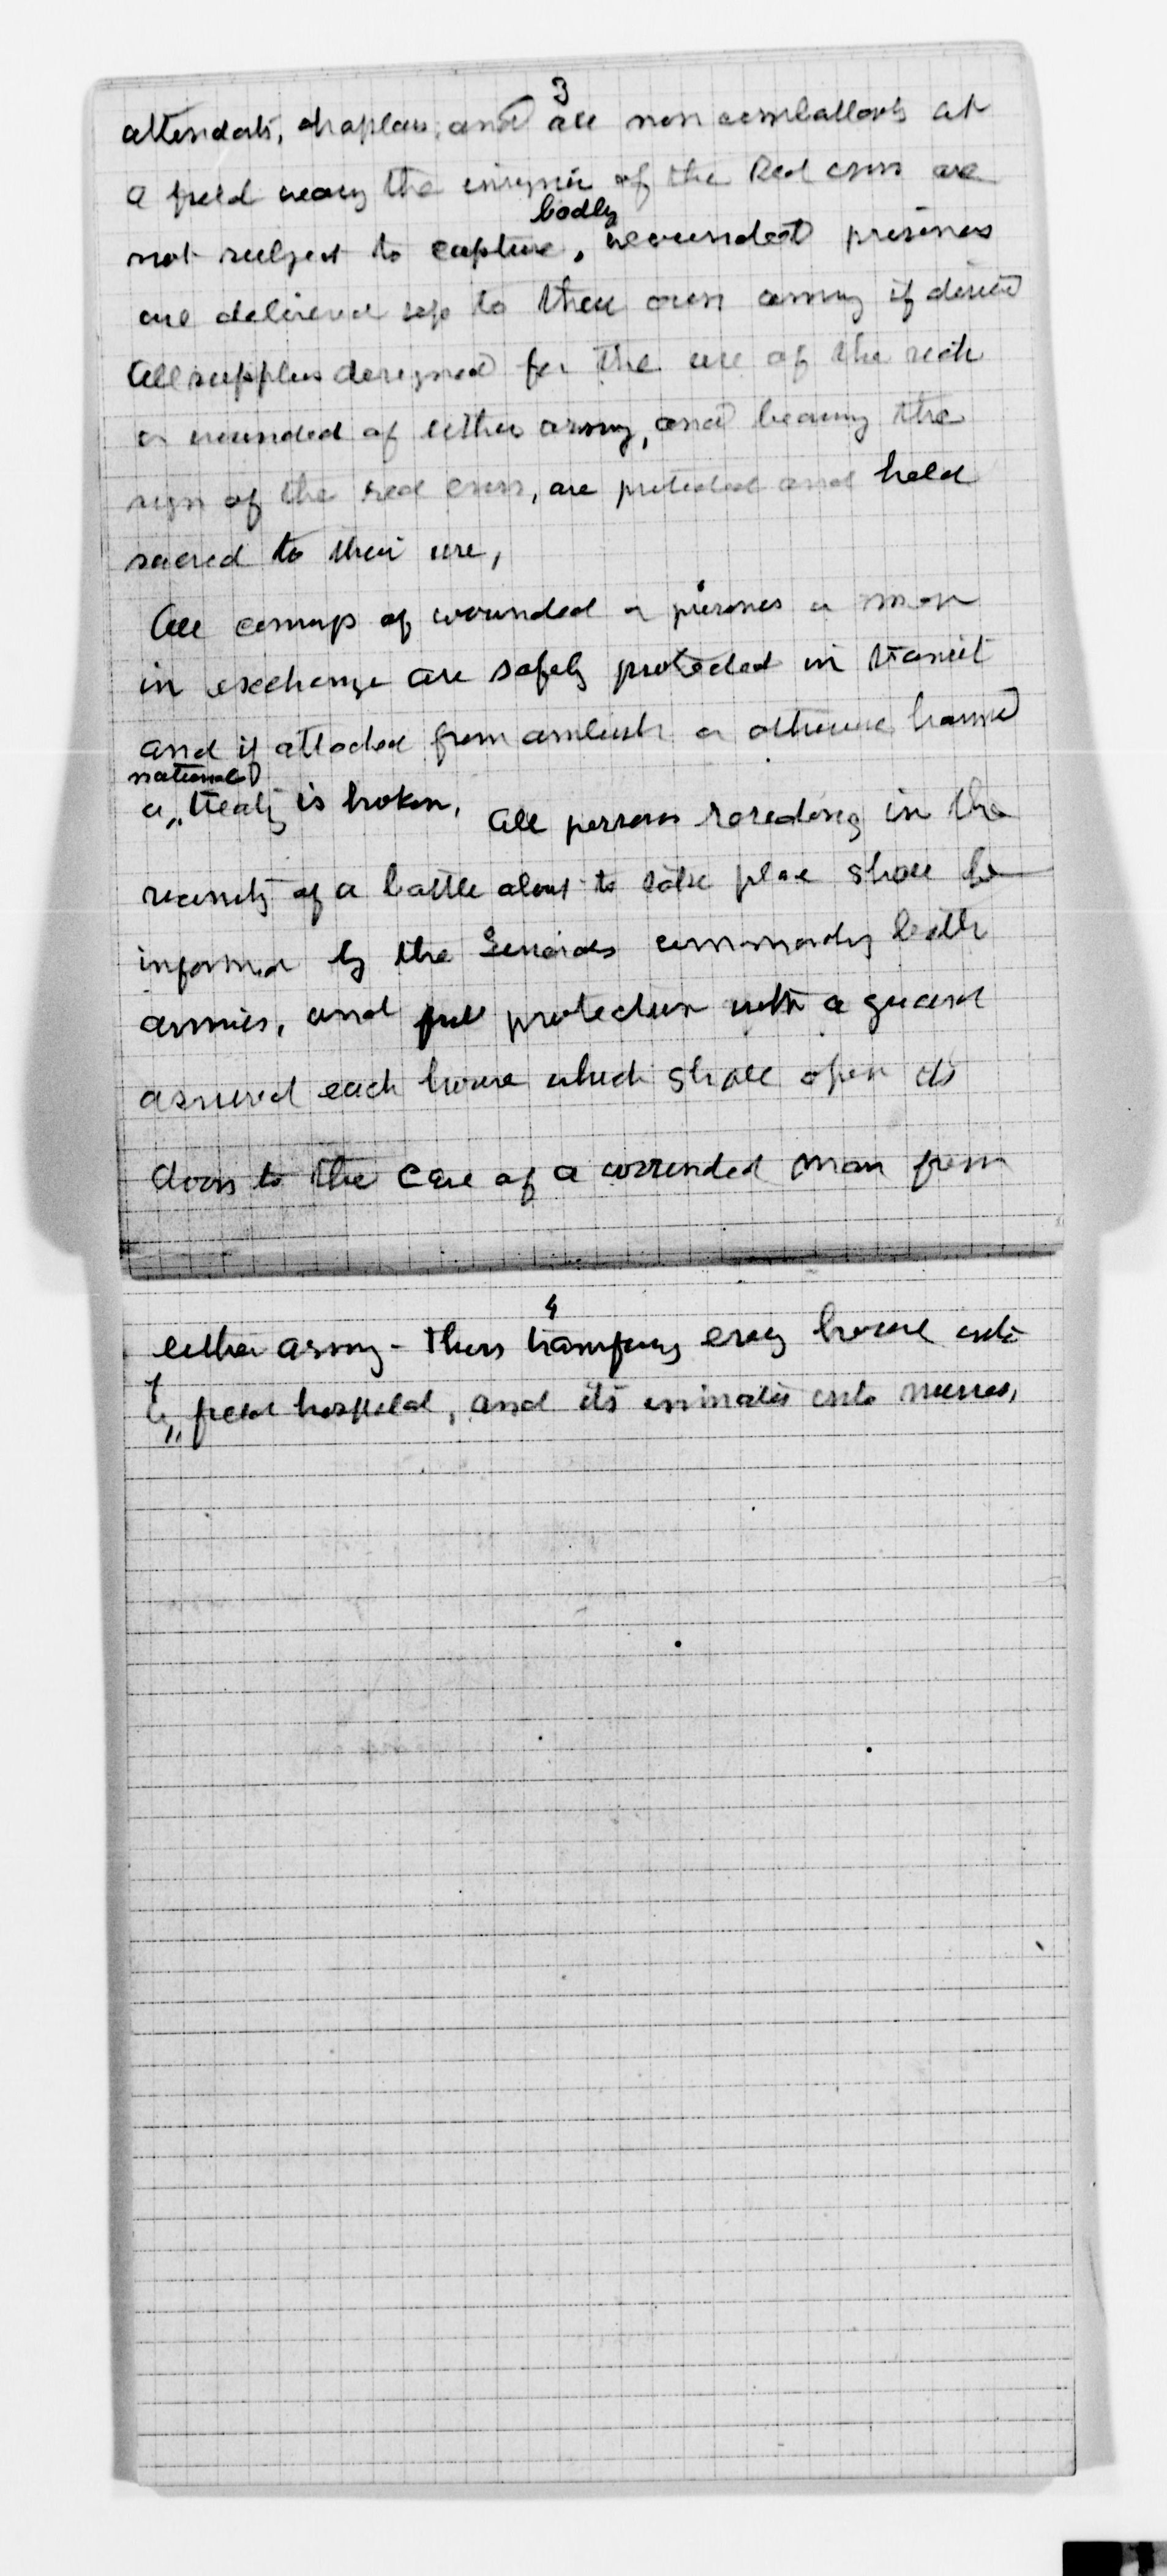 3
attendants, chaplains, and all non combattants at
a field wearing the insignia of the Red cross are
not subject to capture, badly wounded prisoners
are delivered up to their own army if desired
All supplies designed for the use of the sick
or wounded of either army, and bearing the
sign of the red cross, are protected and held
sacred to their use,
All convoys of wounded or prisoners or men
in exchange are safely protected in transit
and if attacked from ambush or otherwise harmed
a national treaty is broken. All persons residing in the
vicinity of a battle about to take place shall be
informed by the Generals commanding both
armies, and full protection with a guard
assured each house which shall open its
doors to the care of a wounded man from
4
either army - thus every house into
field hospital, and its inmates into nurses,